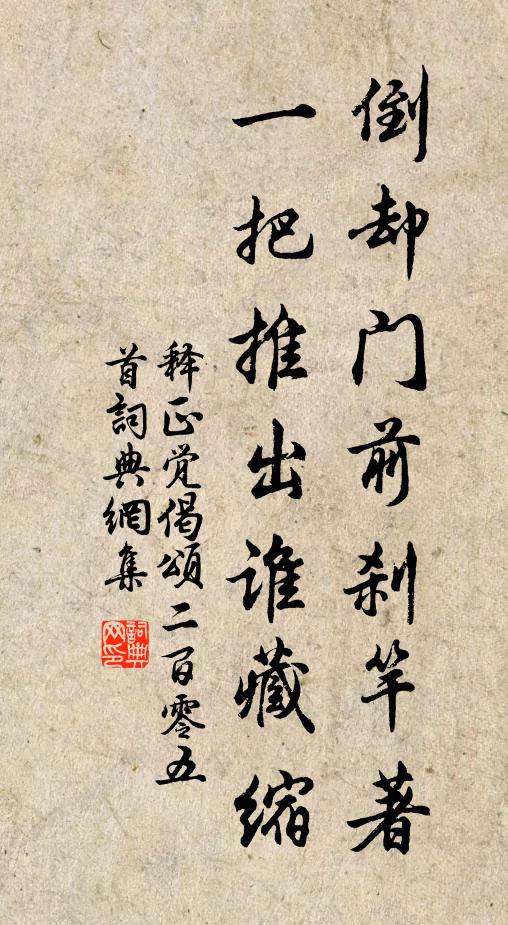 倒却门前刹竿著
一把推出谁藏缩
释正觉偈颂二百零五
首词典网集
词典网印